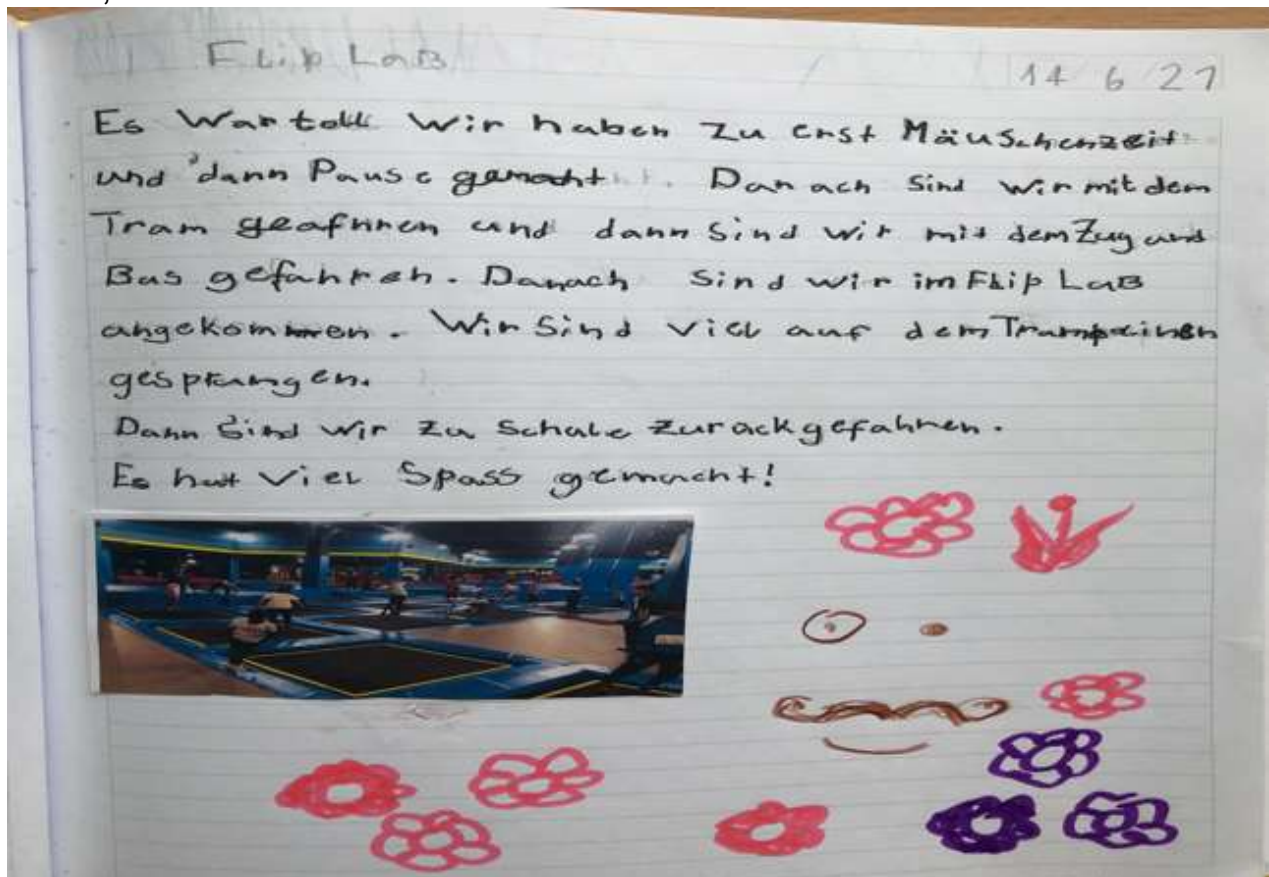 Flip LaB 14 6 21
Es War toll Wir haben Zu erst Mäuschenzeit
und dann Pause gemacht. Danach Sind wir mit dem
Tram geafhren und dann Sind wir mit dem Zug und
Bus gefahren. Danach Sind wir im Flip LaB
angekommen. Wir Sind viel auf dem Trampoinen
gesprungen.
Dann Sind wir zu Schule Zurückgefahren.
Es hat Viel Spass gemacht!